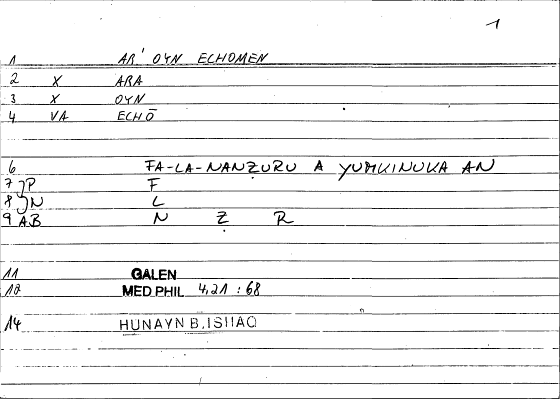 1
1 AR' OYN ECHOMEN
2 X ARA
3 X OYN
4 VA ECHŌ
6 FA-LA-NANẒURU A YUMKINUKA AN
7 JP F
8 JN L
9 AB N Ẓ R
11 GALEN
12 MED PHIL 4,21 : 68
14 HUNAYN B. ISHAQ